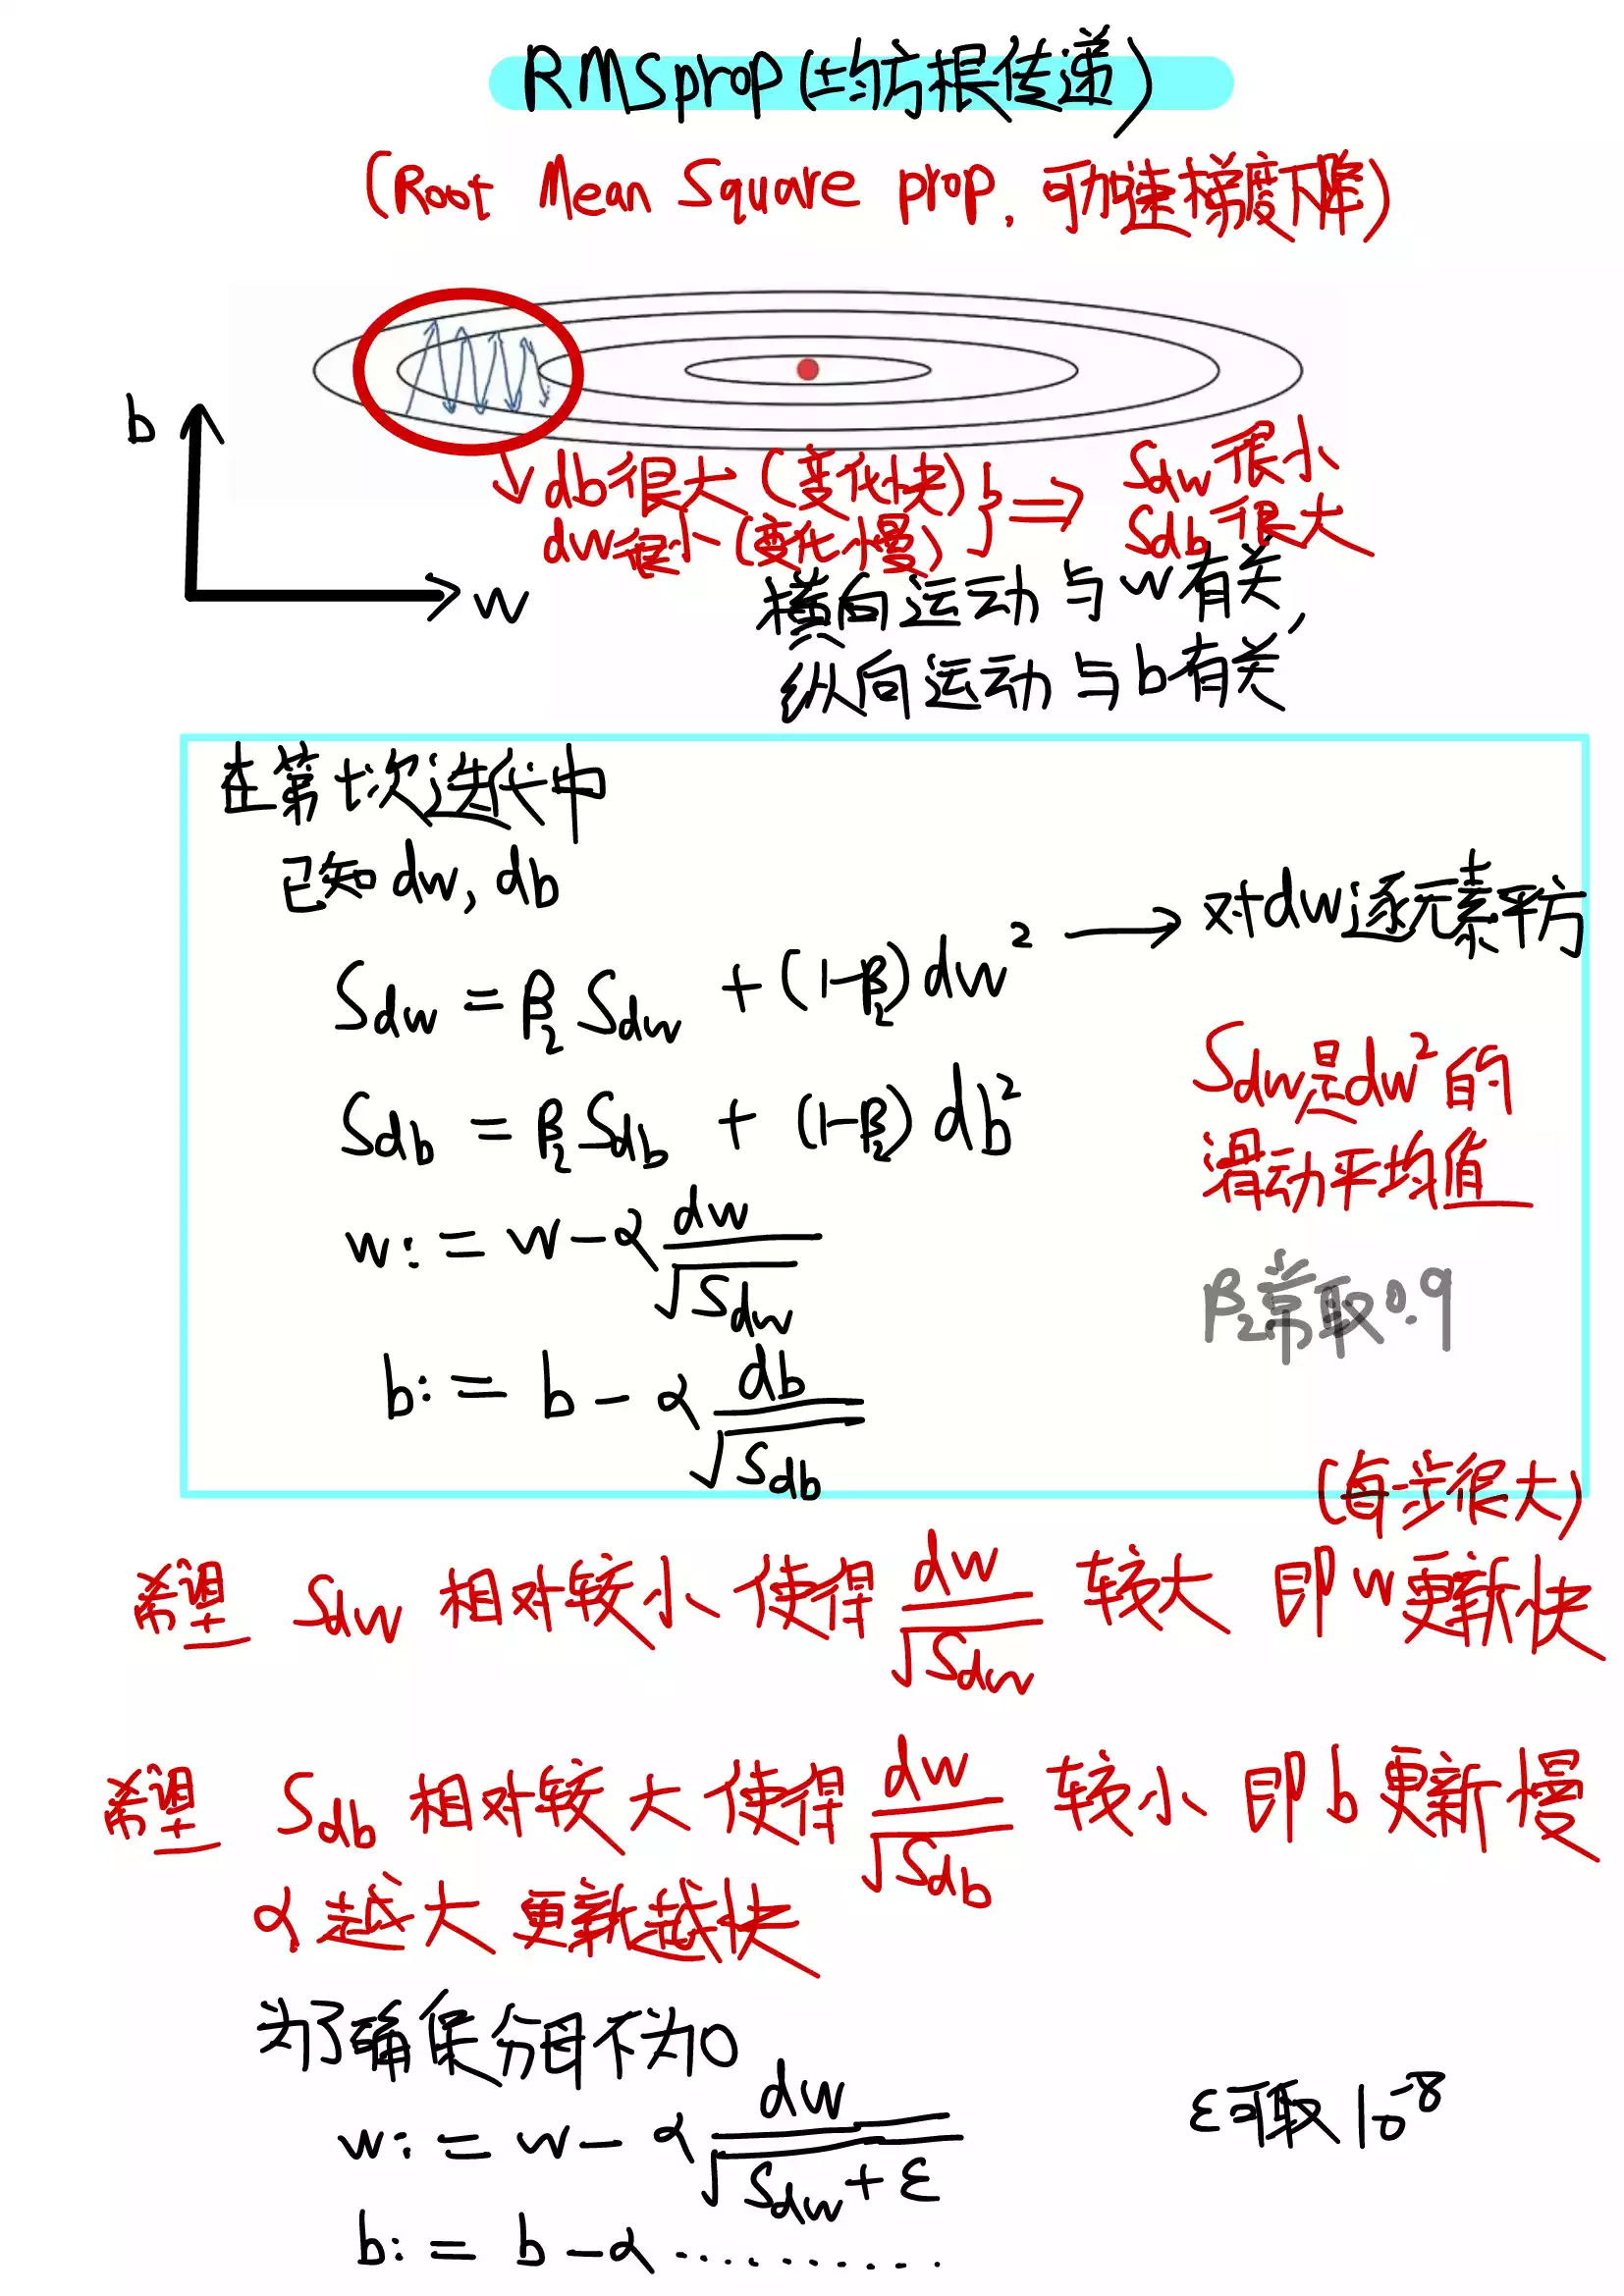 RMSprop(均方根传递)
(Root Mean Square prop, 可加速梯度下降)
b
w
db很大(变化快)
dw很小(变化慢)
} ⇒
Sdw很小
Sdb很大
横向运动与w有关,
纵向运动与b有关
在第t次迭代中
已知dw, db
S_dw = β₂ S_dw + (1-β₂) dw² → 对dw逐元素平方
S_db = β₂ S_db + (1-β₂) db²
Sdw是dw²的
滑动平均值
w := w - α dw/√S_dw
β₂常取0.9
b := b - α db/√S_db
(每步很大)
希望 Sdw 相对较小使得 dw/√Sdw 较大 即w更新快
希望 Sdb 相对较大使得 dw/√Sdb 较小 即b更新慢
α越大 更新越快
为了确保分母不为0
w := w - α dw/√(S_dw + ε)
ε可取 10⁻⁸
b := b - α ...........